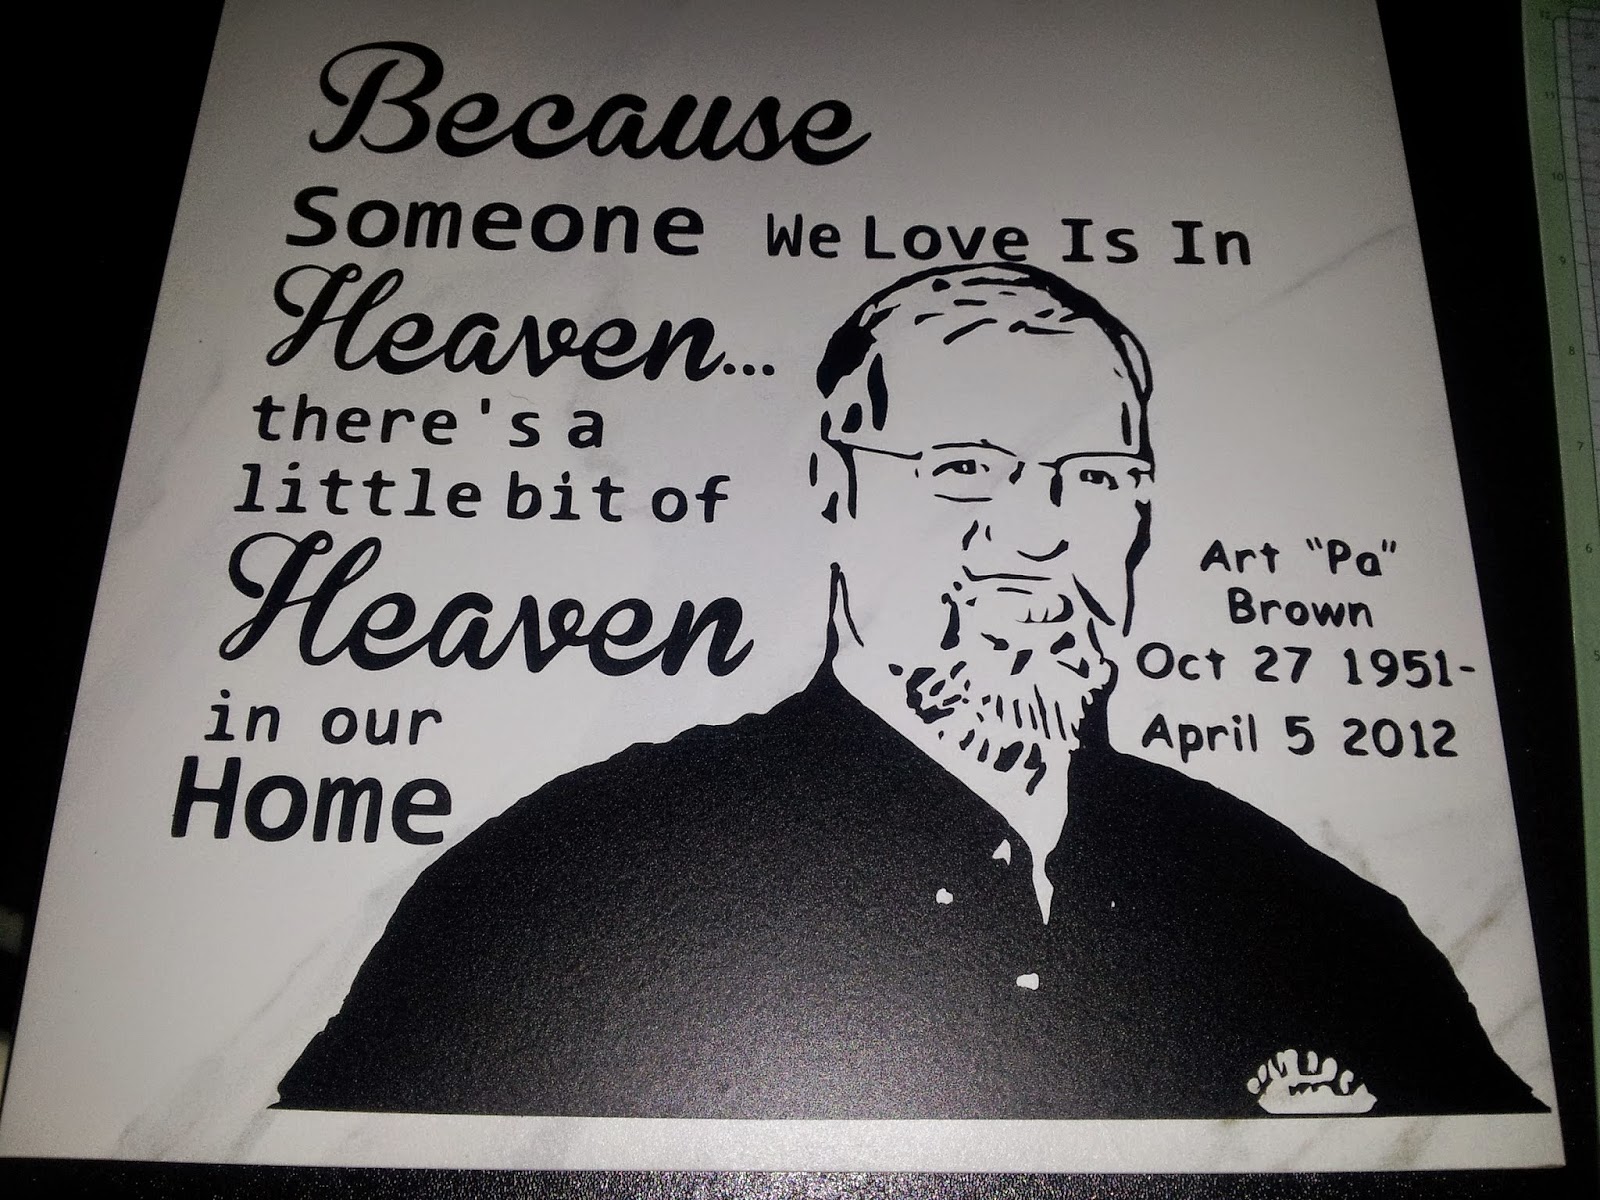 Because
Someone We Love Is In
Heaven...
there's a
little bit of
Heaven
in our
Home
Art "Pa"
Brown
Oct 27 1951-
April 5 2012